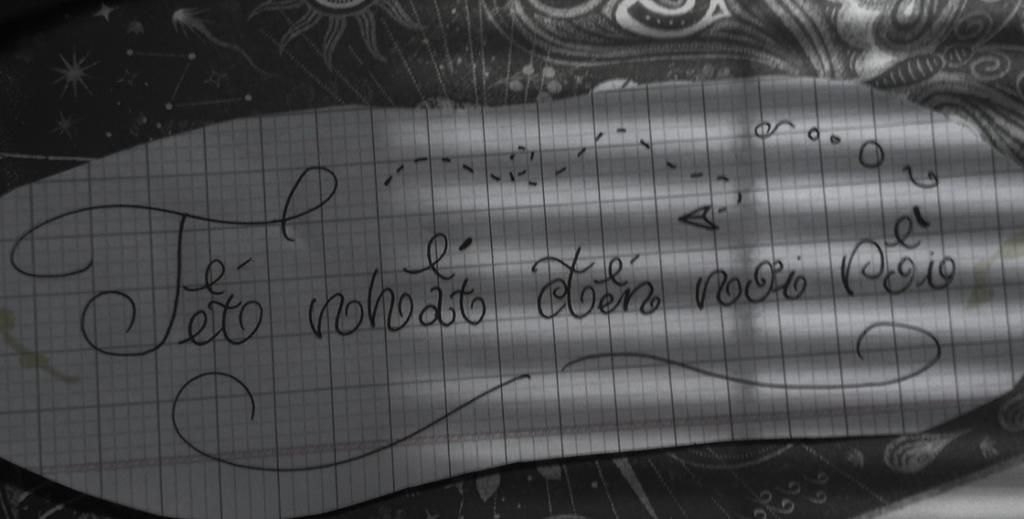 Tết nhất đến nơi rồi